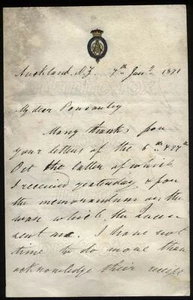 Auckland N.Z. 7th Jany 1871
My dear
Many thanks for
your letters of the 6th &
Oct the latter of which
I received yesterday, also
the memorandum on the
war which the
sent me. I have not
time to do more than
acknowledge their